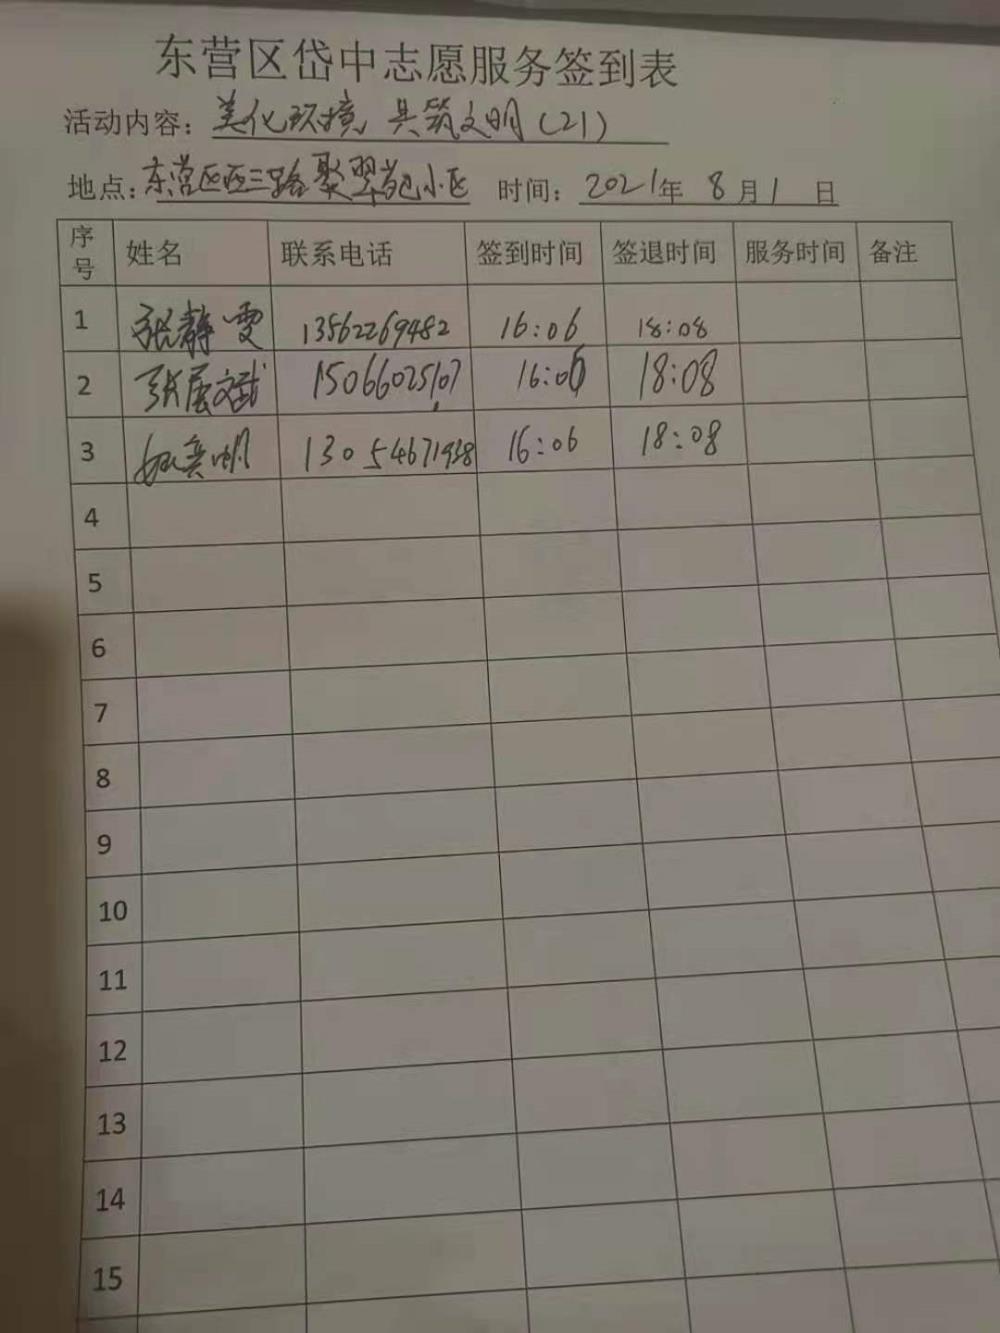 东营区岱中志愿服务签到表
活动内容：美化环境 共筑文明（21）
地点：东营区西三路聚翠苑小区 时间：2021年 8月1 日
序号 姓名 联系电话 签到时间 签退时间 服务时间 备注
1 张静雯 13562269482 16:06 18:08
2 张展文武 15066025107 16:06 18:08
3 13054671938 16:06 18:08
4
5
6
7
8
9
10
11
12
13
14
15